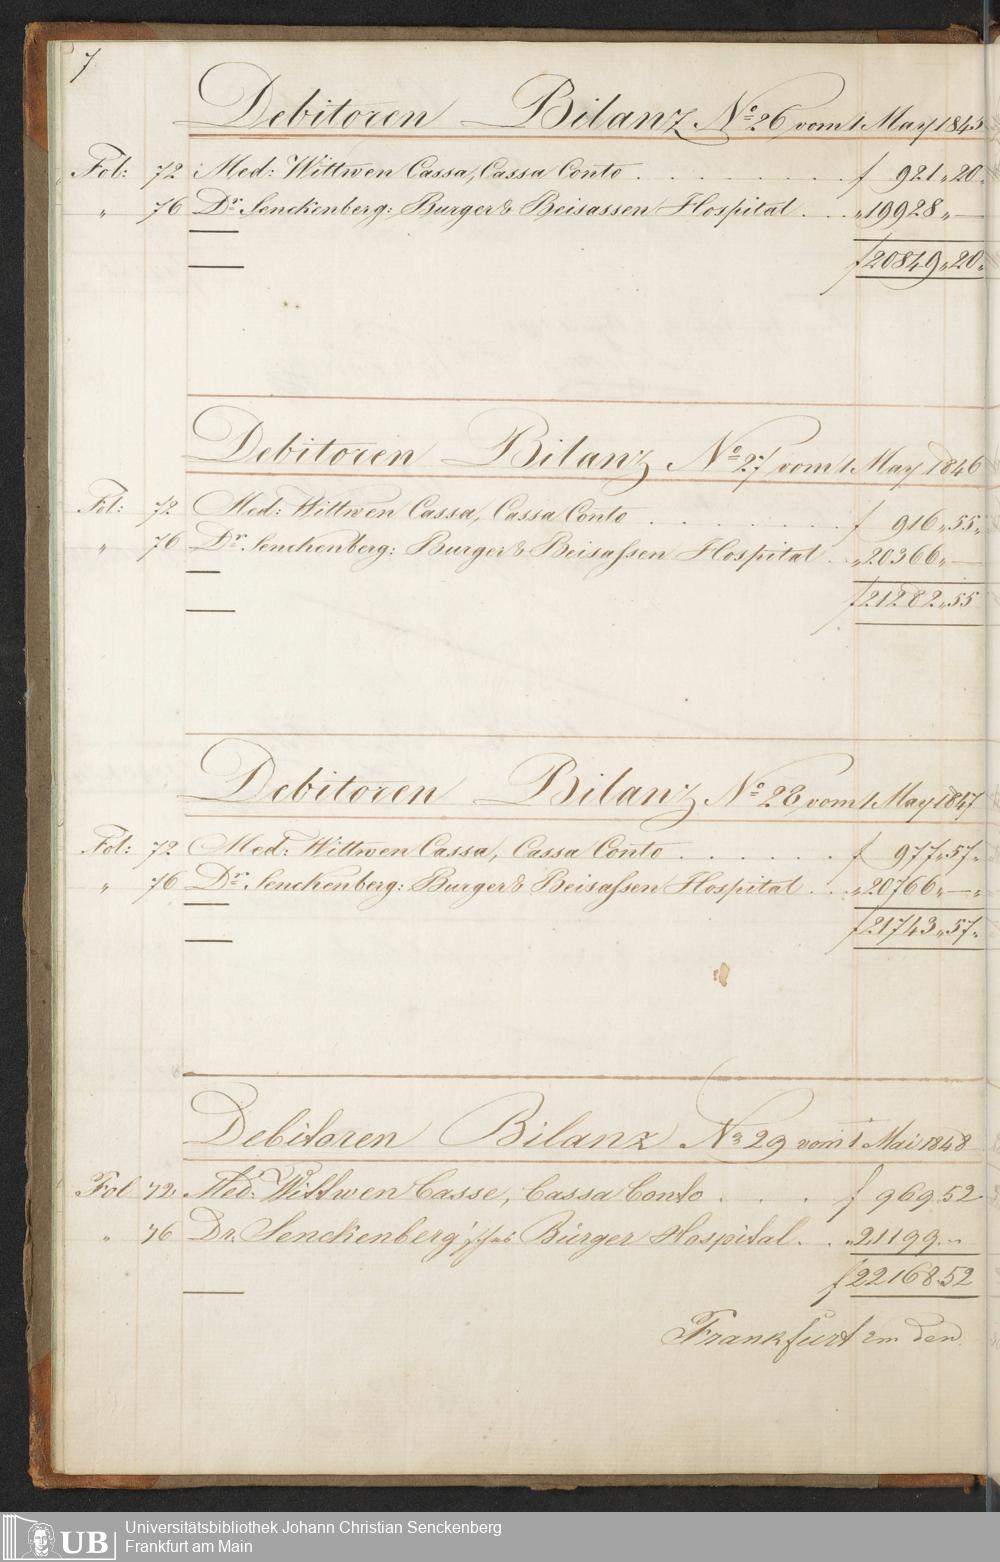 7.
Debitoren Bilanz No. 26, vom 1 May 1845
Fol: 72 Med: Wittwen Cassa, Cassa Conto . . . . . . . . . f 921 „ 20 „
„ 76 Dr. Senckenberg: Burger & Beisassen Hospital . . . „ 19928 „ —
f 20849 „ 20 „
Debitoren Bilanz No. 27 vom 1 May 1846
Fol: 72 Med: Wittwen Cassa, Cassa Conto . . . . . . . . . f 916 „ 55 „
„ 76 Dr. Senckenberg: Burger & Beisaſsen Hospital . „ 20366 „ —
f 21282 „ 55
Debitoren Bilanz No. 28, vom 1 May 1847
Fol: 72 Med: Wittwen Cassa, Cassa Conto . . . . . . . f 977 „ 57 „
„ 76 Dr. Senckenberg: Burger & Beisaſsen Hospital . . „ 20766 „ — „
f 21743 „ 57 „
Debitoren Bilanz No 29 vom 1 Mai 1848
Fol 72 Med. Wittwen Casse, Cassa Conto . . . . f 969 52
„ 76 Dr. Senckenberg' Bürger Hospital . . „ 21199 . —
f 22168 52
Frankfurt den
Universitätsbibliothek Johann Christian Senckenberg
UB Frankfurt am Main